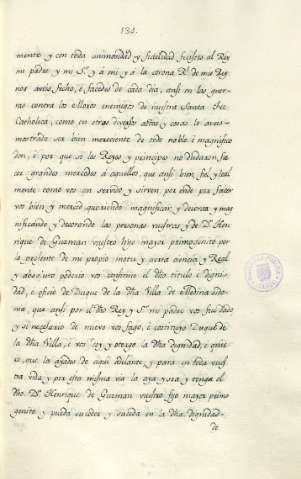 134.
mente y con toda animosidad y fidelidad fecisteis al Rey
mi padre y mi Sr. y a mi y a la corona Rl. de mis Rey
nos aveis fecho, e facedes de cada dia, ansi en las gue-
rras contra los Moros enemigos de nuestra Santa Fee
Catholica, como en otras diversas cosas te aveis
mostrado ser bien mereciente de todo noble i magnifico
don, e por que si los Reyes y principes no dudaron, fa
cer grandes mercedes à aquellos, que ansi bien fiel, y leal
mente como vos son servido y sirven por ende por facer
vos bien y merced queriendo magnificar y decorar y mag
nificando y decorando las personas vuestra y de Dn. Hen
rique de Guzman vuestro hijo mayor primogenito por
la presente de mi propio motu y cierta ciencia y Real
y absoluto poderio vos confirmo el dho titulo e digni-
dad, è oficio de Duque de la dha Villa de Medina sido-
nia, que ansi por el dho Rey y Sr. mi padre vos fue dado
y si necesario de nuevo vos fago, è constituyo Duque de
la dha Villa, è vos doy y otorgo la dha dignidad, è quie
ro, que la ayades de aqui adelante y para en toda vues
tra vida, y por esta misma via la aya, y sea y tenga el
dho. Dn. Henrique de Guzman vuestro fijo mayor primo
genito y pueda suceder y suceda en la dha dignidad-
de